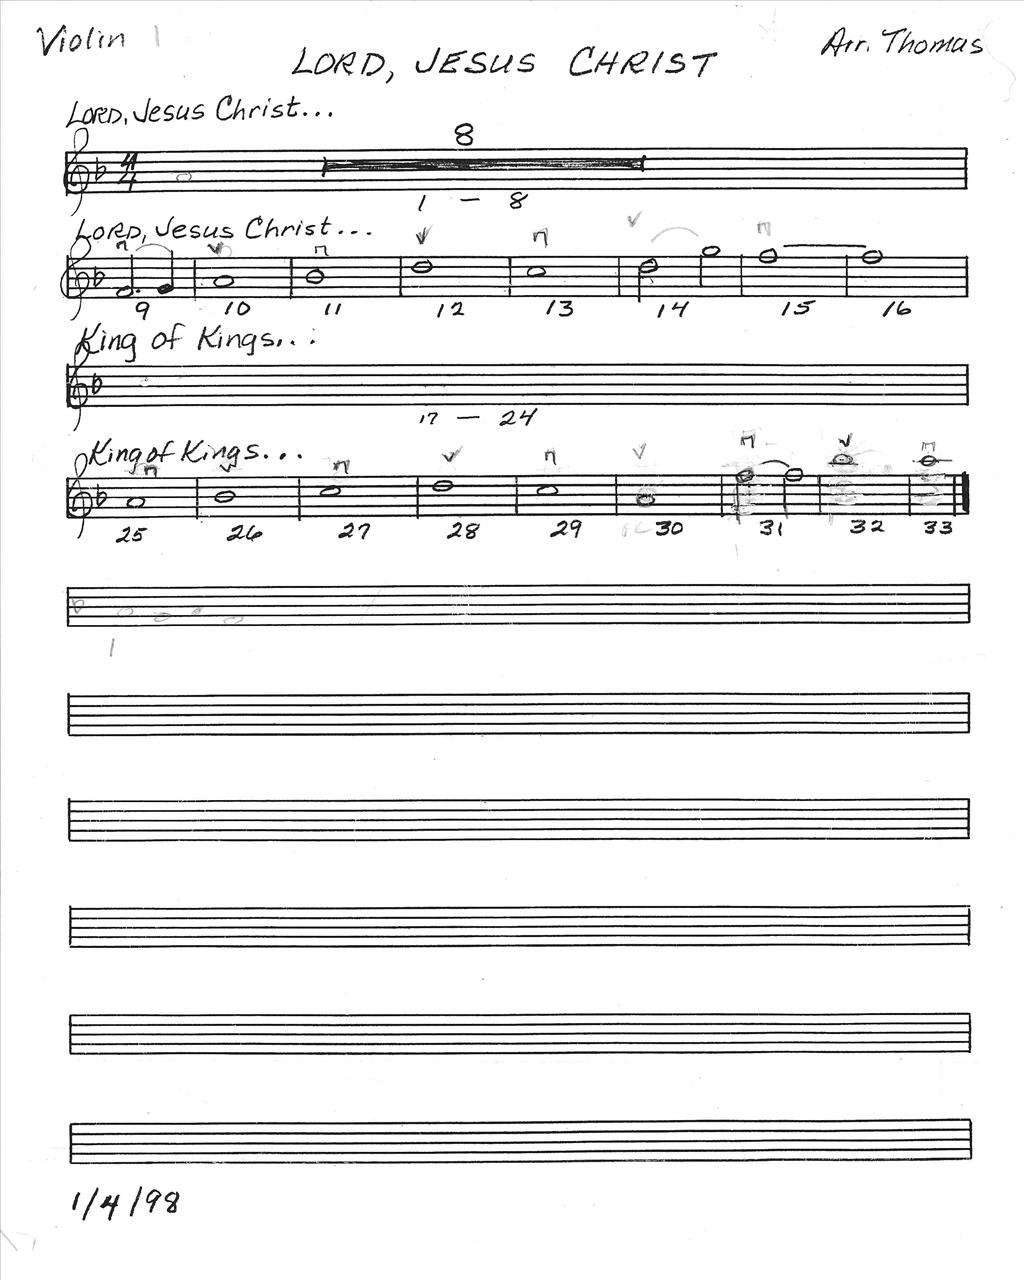 Violin 1
LORD, JESUS CHRIST
Arr. Thomas
LORD, Jesus Christ...
4/4
8
1 — 8
LORD, Jesus Christ...
9 10 11 12 13 14 15 16
King of Kings...
17 — 24
King of Kings...
25 26 27 28 29 30 31 32 33
1
1/4/98